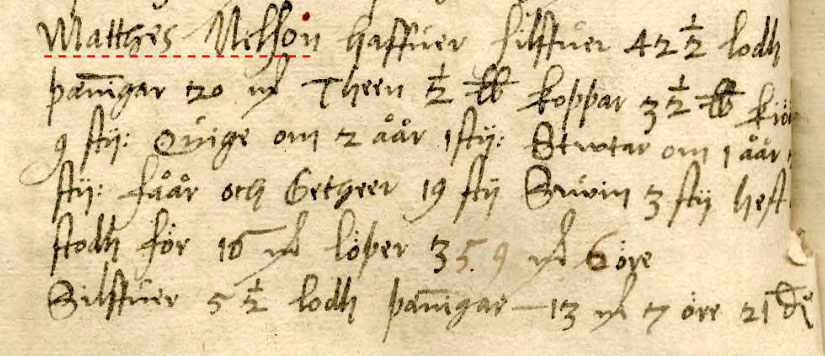 Matthes Nelson haffuer silffuer 42 ½ lodh
pæn̄igar 20 mk Theen ½ ℔ koppar 3 ½ ℔ kiör
9 sty: Quige om 2 åår 1 sty: Stutar om 1 åår
sty: fåår och Getheer 19 sty Suuin 3 sty hest
stodh för 16 mk löper 359 mk 6 öre
Silffuer 5 ½ lodh pæn̄igar — 13 mk 7 öre 21